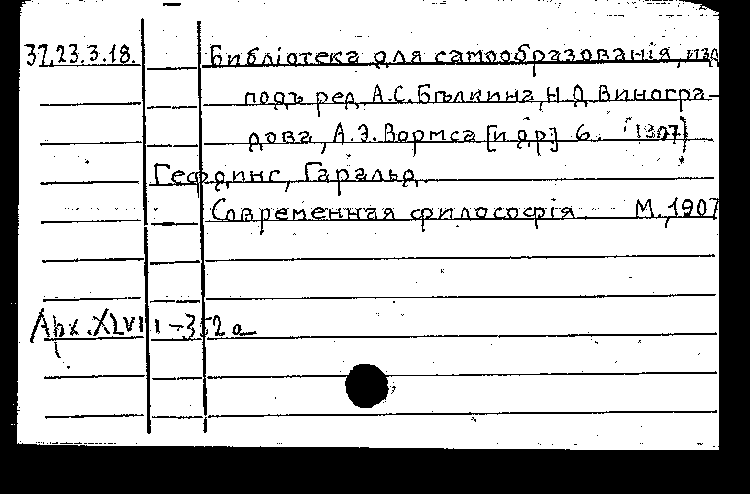 37.23.3.18. Библіотека для самообразованія, изд
подъ ред. А.С. Бѣлкина, Н.Д. Виногра-
дова, А.Э. Вормса [и др] 6. (1907)
Геффдинг, Гаральд
Современная философія М., 1907
Арх. XLVIII-352 a